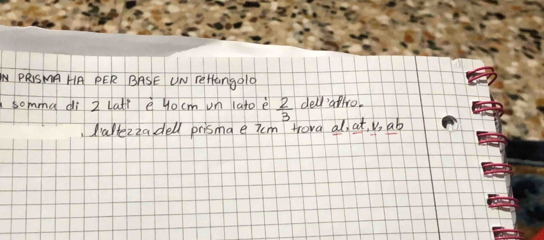 UN PRISMA HA PER BASE UN rettangolo
somma di 2 Lati è 40 cm un lato è 2/3 dell'altro.
l'altezza dell prisma e 7cm trova al, at, v, ab